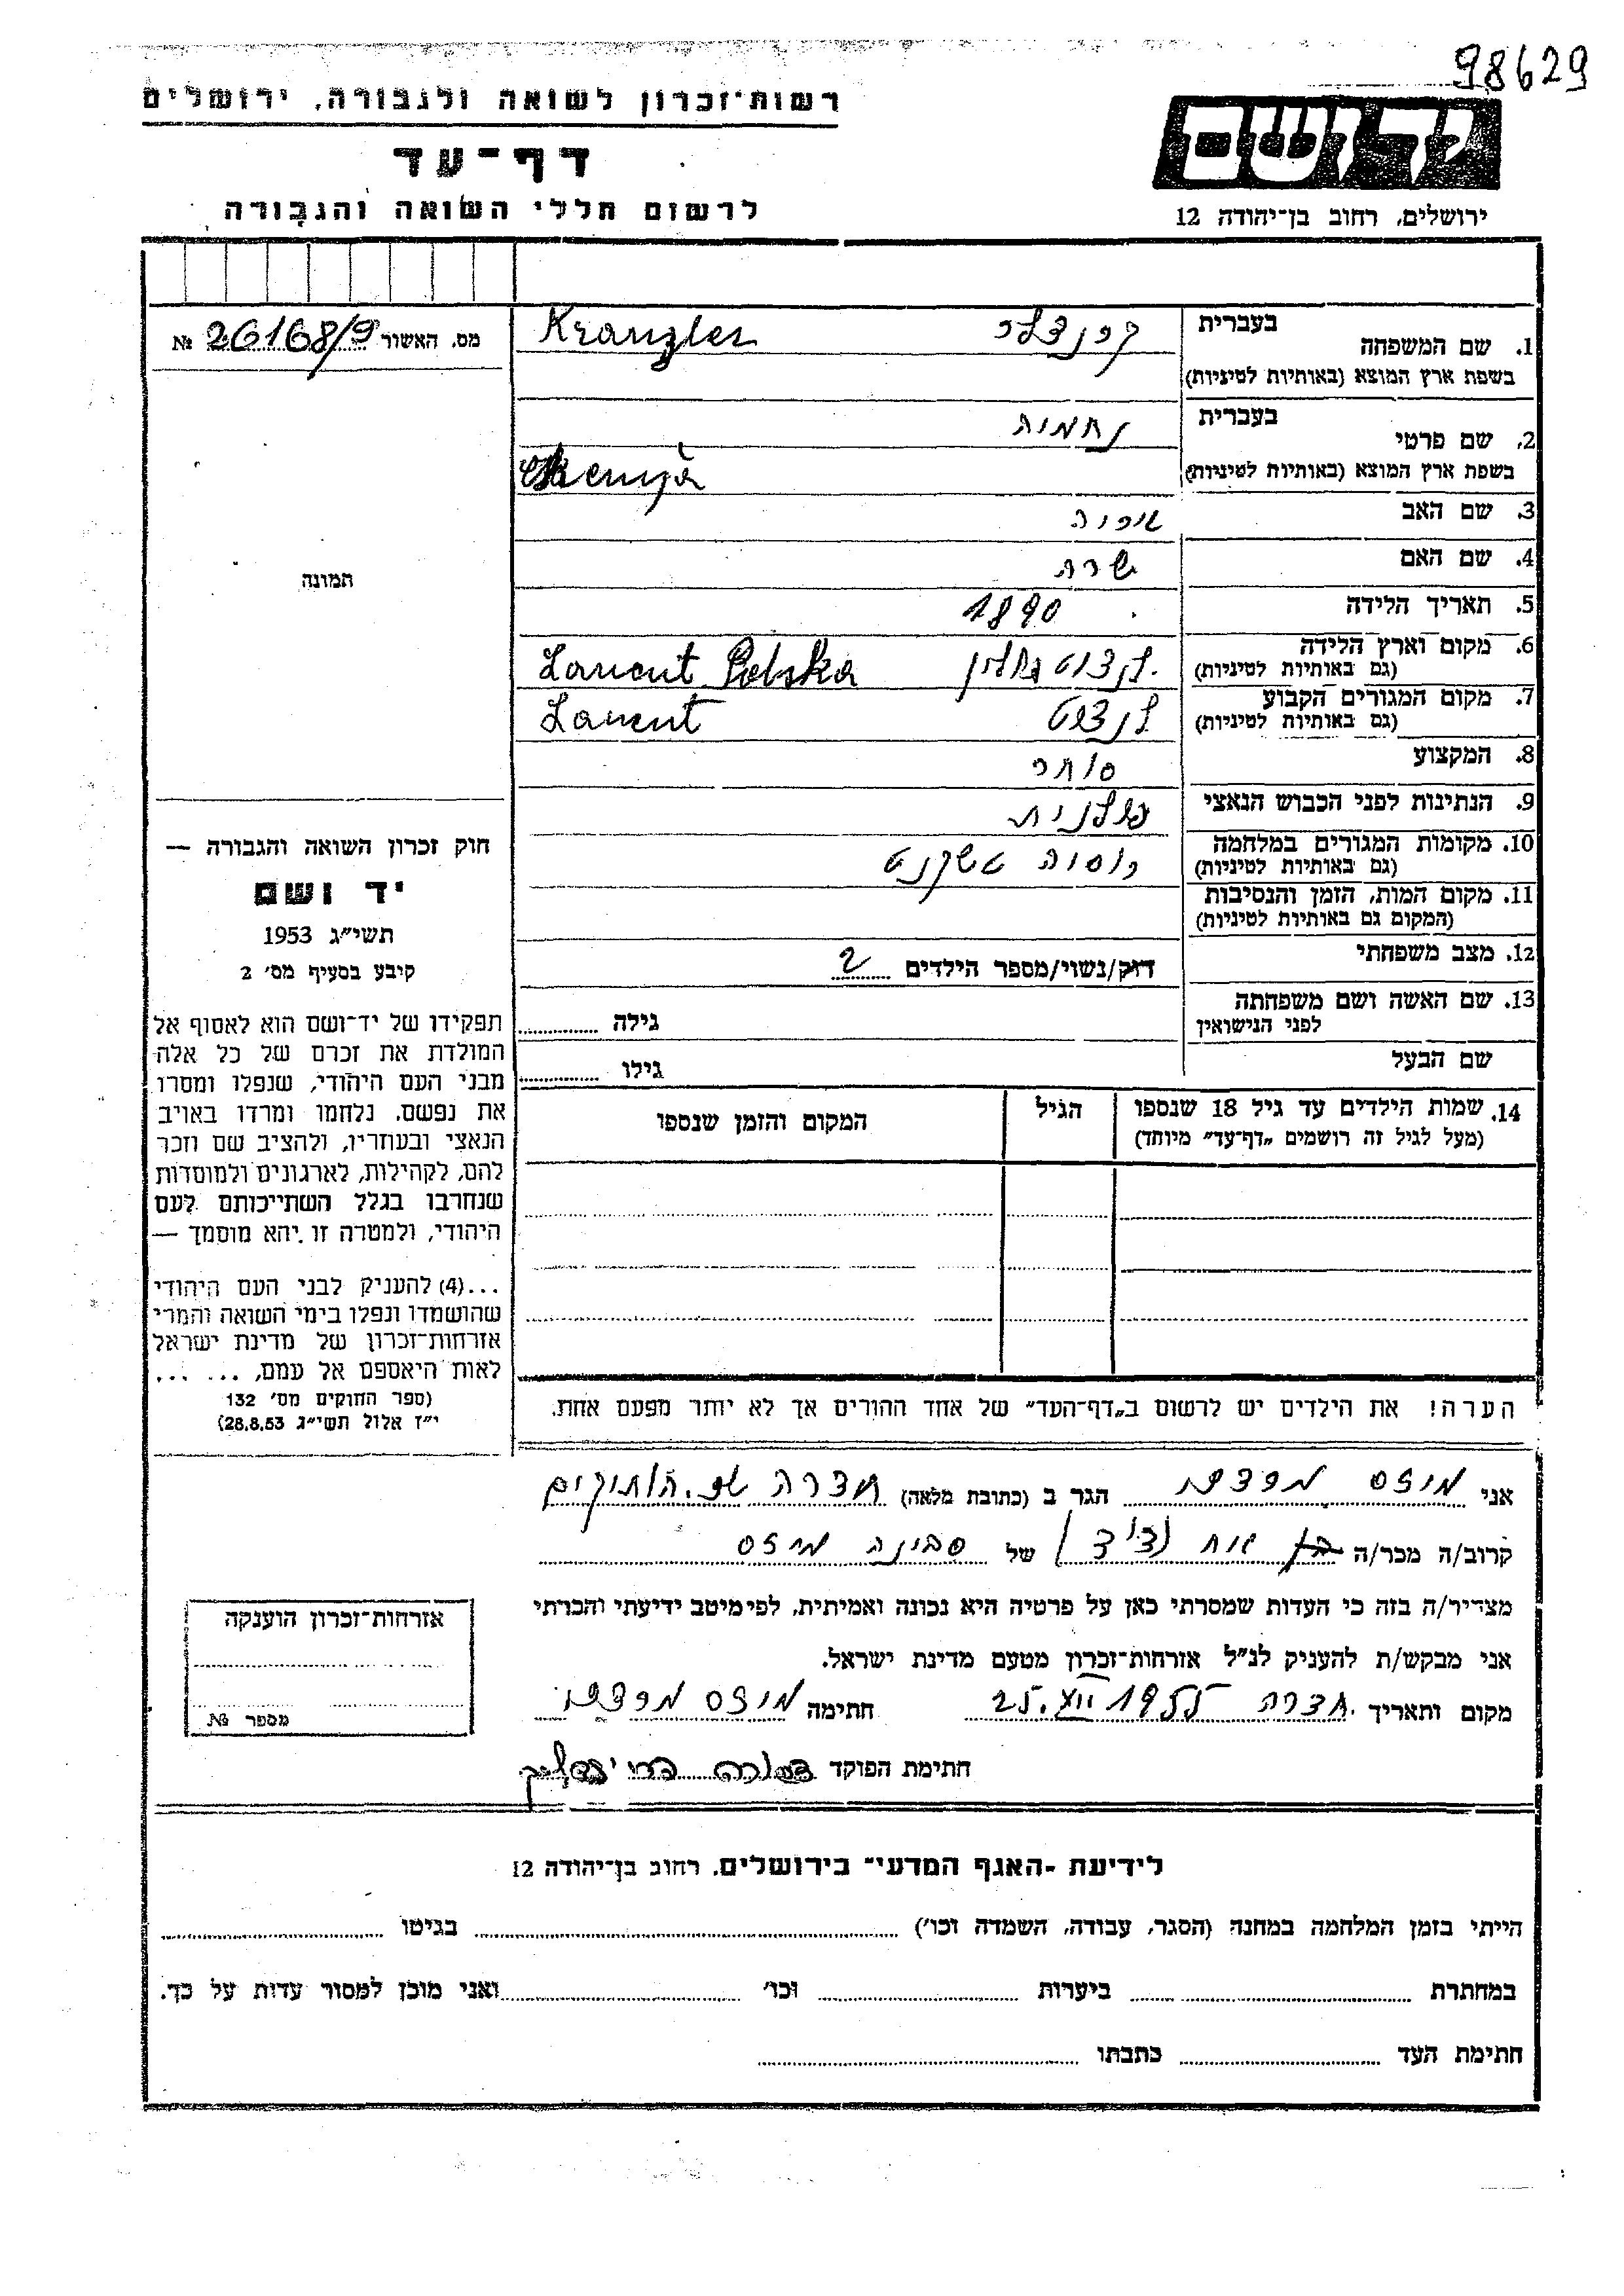 98629
רשות־זכרון לשואה ולגבורה, ירושלים
דף־עד
לרשום חללי השואה והגבורה
יד ושם
ירושלים, רחוב בן־יהודה 12
מס. האשור 26168/9 №
תמונה
חוק זכרון השואה והגבורה —
יד ושם
תשי״ג 1953
קיבע בסעיף מס׳ 2
תפקידו של יד־ושם הוא לאסוף אל
המולדת את זכרם של כל אלה
מבני העם היהודי, שנפלו ומסרו
את נפשם, נלחמו ומרדו באויב
הנאצי ובעוזריו, ולהציב שם וזכר
להם, לקהילות, לארגונים ולמוסדות
שנחרבו בגלל השתייכותם לעם
היהודי, ולמטרה זו יהא מוסמך —
...(4) להעניק לבני העם היהודי
שהושמדו ונפלו בימי השואה והמרי
אזרחות־זכרון של מדינת ישראל
לאות היאספם אל עמם, ... ...
(ספר החוקים מס׳ 132
י״ז אלול תשי״ג 28.8.53)
1. שם המשפחה בעברית קרנצלר Kranzler
בשפת ארץ המוצא (באותיות לטיניות)
2. שם פרטי בעברית נחמיה
בשפת ארץ המוצא (באותיות לטיניות)
3. שם האב
4. שם האם שרה
5. תאריך הלידה 1890
6. מקום וארץ הלידה (גם באותיות לטיניות) לנצוט פולין Lancut Polska
7. מקום המגורים הקבוע (גם באותיות לטיניות) לנצוט Lancut
8. המקצוע סוחר
9. הנתינות לפני הכבוש הנאצי פולנית
10. מקומות המגורים במלחמה (גם באותיות לטיניות) רוסיה טשקנט
11. מקום המות, הזמן והנסיבות (המקום גם באותיות לטיניות)
12. מצב משפחתי רווק/נשוי/מספר הילדים 2
13. שם האשה ושם משפחתה לפני הנישואין גילה
שם הבעל גילו
14. שמות הילדים עד גיל 18 שנספו הגיל המקום והזמן שנספו
(מעל לגיל זה רושמים „דף־עד״ מיוחד)
הערה! את הילדים יש לרשום ב„דף־העד״ של אחד ההורים אך לא יותר מפעם אחת.
אני מוזס הגר ב (כתובת מלאה) חדרה שכ. הותיקים
קרוב/ה מכר/ה של סבינה מוזס
מצהיר/ה בזה כי העדות שמסרתי כאן על פרטיה היא נכונה ואמיתית, לפי מיטב ידיעתי והכרתי
אני מבקש/ת להעניק לנ״ל אזרחות־זכרון מטעם מדינת ישראל.
מקום ותאריך חדרה חתימה מוזס
חתימת הפוקד
אזרחות־זכרון הוענקה
מספר №
לידיעת „האגף המדעי״ בירושלים, רחוב בן־יהודה 12
הייתי בזמן המלחמה במחנה (הסגר, עבודה, השמדה וכו׳) בגיטו
במחתרת ביערות וכו׳ ואני מוכן למסור עדות על כך.
חתימת העד כתבתו